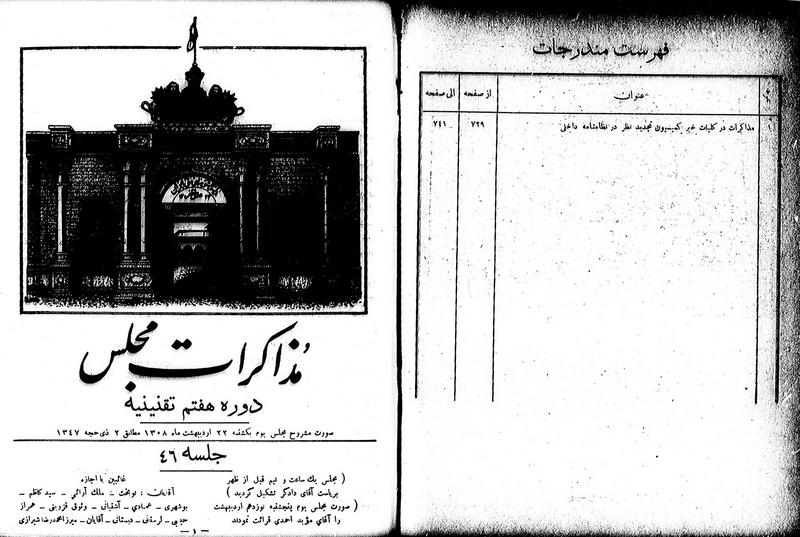 مذاکرات مجلس
دوره هفتم تقنینیه
صورت مشروح مجلس یوم یکشنبه ۲۲ اردیبهشت ماه ۱۳۰۸ مطابق ۲ ذی حجه ۱۳۴۷
جلسه ۴۶
( مجلس یك ساعت و نیم قبل از ظهر
بریاست آقای دادگر تشکیل گردید )
( صورت مجلس یوم پنجشنبه نوزدهم اردیبهشت
را آقای مؤید احمدی قرائت نمودند
غائبین با اجازه
آقایان : نوبخت – ملك آرائی – سید کاظم –
بوشهری – عمادی – آشتیانی – وثوق قزوینی –
لرستانی – دبستانی – آقایان – میرزا محمد رضا شیرازی
– ۱ –
فهرست مندرجات
عنوان
از صفحه
الی صفحه
۱
مذاکرات در کلیات خبر کمیسیون تجدید نظر در نظامنامه داخلی
۷۲۹
۷۴۱